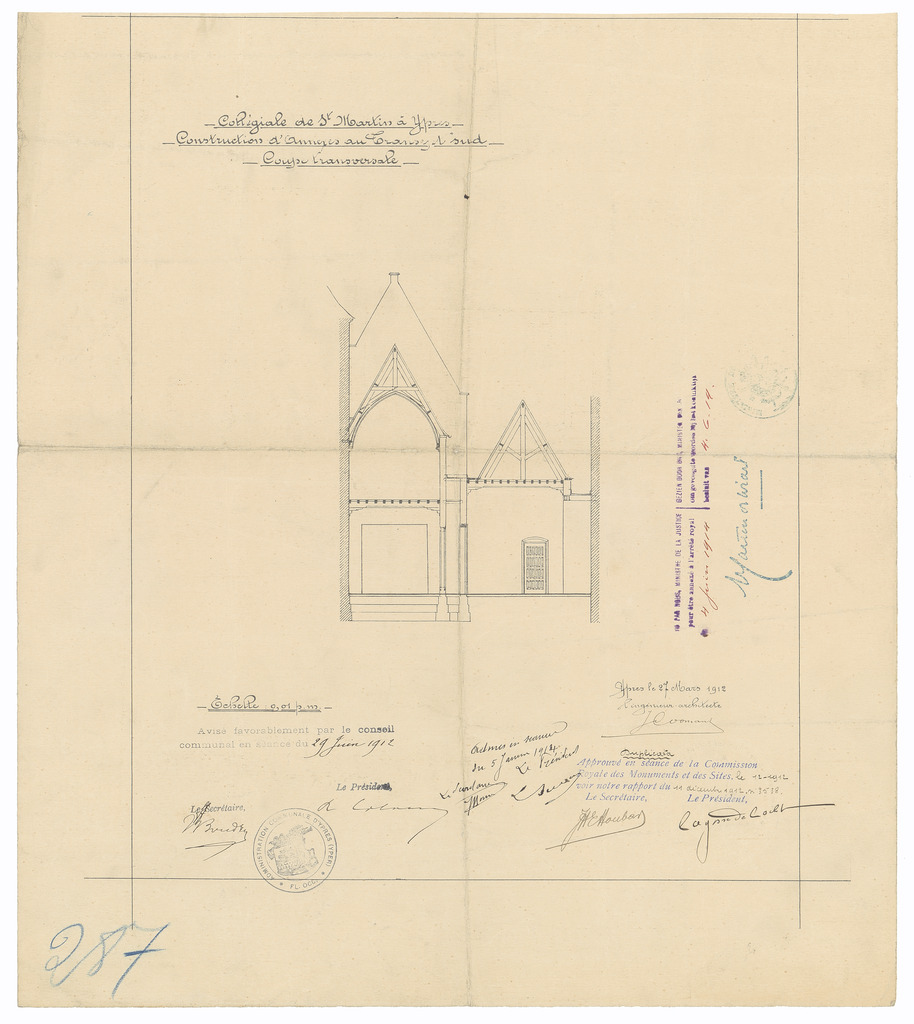 Collégiale de St Martin à Ypres
Construction d'Annexes au Transept sud
Coupe transversale
VU PAR NOUS, MINISTRE DE LA JUSTICE
pour être annexé à l'arrêté royal
du 4 juin 1914
GEZIEN DOOR ONS, MINISTER VAN
om gevoegd te worden bij het koninklijk
besluit van 4. 6. 14.
Échelle 0,01 p.m.
Avisé favorablement par le conseil
communal en séance du 29 Juin 1912
Le Secrétaire,
Le Président,
ADMINISTRATION COMMUNALE D'YPRES (YPER)
FL. OCC.
Admis en séance
du 5 Janvier 1914.
Le Président
Le Secrétaire
Ypres le 27 Mars 1912
l'ingénieur architecte
J Coomans
Duplicata
Approuvé en séance de la Commission
Royale des Monuments et des Sites, le 12-1912
voir notre rapport du 11 décembre 1912, n° 3538.
Le Secrétaire,
Le Président,
Lagasse de Locht
287